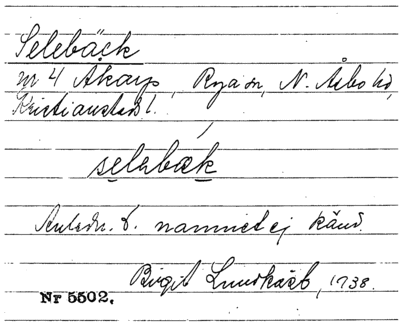 Selebäck
nr 4 Åkarp, Rya sn, N. Åsbo hd,
Kristianstads l.
selabæk
Anledn. t. namnet ej känd.
Birgit Lundkäeb, 1738.
Nr 5502.